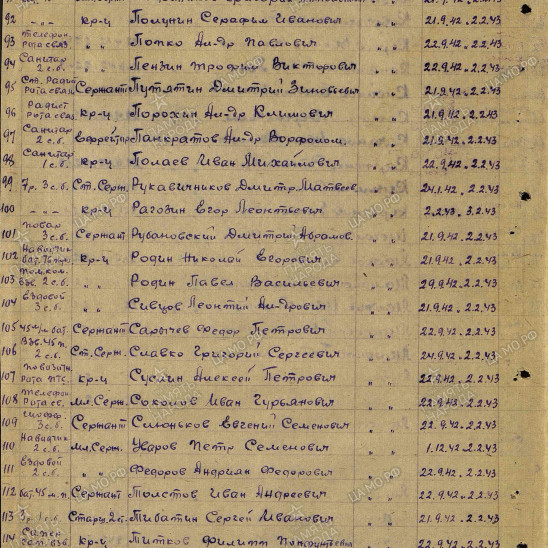 92 -"- кр-ц Полунин Серафим Иванович " " 21.9.42 - 2.2.43
93 Телефон. рота связ. " " Попко Ал-др Павлович " " 22.9.42 - 2.2.43
94 Санитар 2 с.б. " " Пензин Трофим Викторович " " 22.9.42 - 2.2.43
95 Ст. Радист Рота связи Сержант Путятин Дмитрий Зиновьевич " " 21.9.42 - 2.2.43
96 Радист рота связ. кр-ц Порохин Ал-др Климович " " 21.9.42 - 2.2.43
97 Санитар 2 с.б. Ефрейтор Панкратов Ал-др Ворфолом. " " 21.9.42 - 2.2.43
98 Санитар 1 с.б. кр-ц Полаев Иван Михайлович " " 22.9.42 - 2.2.43
99 3 с.б. Ст. Серж. Рукавичников Дмитр. Матвеев. " " 24.1.42 - 2.2.43
100 -"- кр-ц Рагозин Егор Леонтьевич " " 2.2.43 - 3.2.43
101 Повар 3 с.б. Сержант Рубановский Дмитрий Абрамов. " " 21.9.42 - 2.2.43
102 Наводчик кр-ц Родин Николай Егорович " " 21.9.42 - 2.2.43
103 Пом.ком. взв. 2 с.б. " " Родин Павел Васильевич " " 29.9.42 - 2.2.43
104 Ездовой 3 с.б. " " Сивцов Леонтий Ал-дрович " " 21.9.42 - 2.2.43
105 45 м/м бат. Сержант Сарычев Федор Петрович " " 22.9.42 - 2.2.43
106 2 с.б. Ст. Серж. Славко Григорий Сергеевич " " 24.9.42 - 2.2.43
107 Повозочн. Рота ПТС. кр-ц Суслин Алексей Петрович " " 22.9.42 - 2.2.43
108 Телефон Рота св. Мл. Серж. Соколов Иван Гурьянович " " 22.9.42 - 2.2.43
109 Шофф. 3 с.б. Сержант Синюньков Евгений Семенович " " 22.9.42 - 2.2.43
110 Наводчик 2 с.б. Мл. Серж. Уваров Петр Семенович " " 1.12.42 - 2.2.43
111 Ездовой 2 с.б. " " Федоров Андриян Федорович " " 22.9.42 - 2.2.43
112 бат. 45 м.м. Сержант Толстов Иван Андреевич " " 22.9.42 - 2.2.43
113 Старш. Тибатин Сергей Иванович " " 21.9.42 - 2.2.43
114 кр-ц Титков Филипп " " 22.9.42 - 2.2.43
ЦАМО.РФ
ПАМЯТЬ НАРОДА